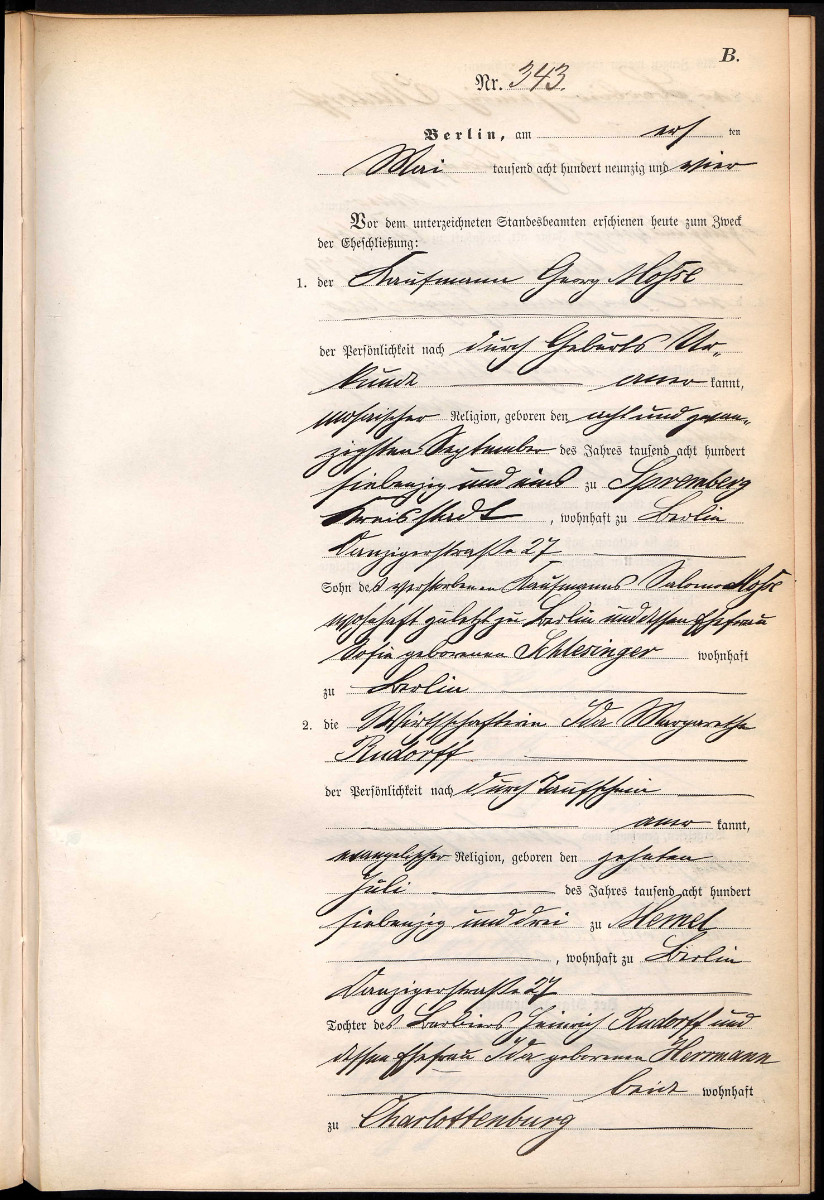 B.
Nr. 343.
Berlin, am ers ten
Mai tausend acht hundert neunzig und vier
Vor dem unterzeichneten Standesbeamten erschienen heute zum Zweck
der Eheschließung:
1. der Kaufmann Georg Mosse
der Persönlichkeit nach durch Geburts Ur-
kunde aner kannt,
mosaischer Religion, geboren den acht und zwan-
zigsten September des Jahres tausend acht hundert
siebenzig und eins zu Spremberg
Kreisstadt, wohnhaft zu Berlin
Danzigerstraße 27
Sohn des verstorbenen Kaufmanns Salomon Mosse
wohnhaft zuletzt zu Berlin und dessen Ehefrau
Sofie geborenen Schlesinger wohnhaft
zu Berlin
2. die Wirthschafterin Ida Margarethe
Rudorff
der Persönlichkeit nach durch Taufschein
aner kannt,
evangelischer Religion, geboren den zehnten
Juli des Jahres tausend acht hundert
siebenzig und drei zu Memel
, wohnhaft zu Berlin
Danzigerstraße 27
Tochter des Barbiers Heinrich Rudorff und
dessen Ehefrau Ida geborenen Herrmann
beide wohnhaft
zu Charlottenburg